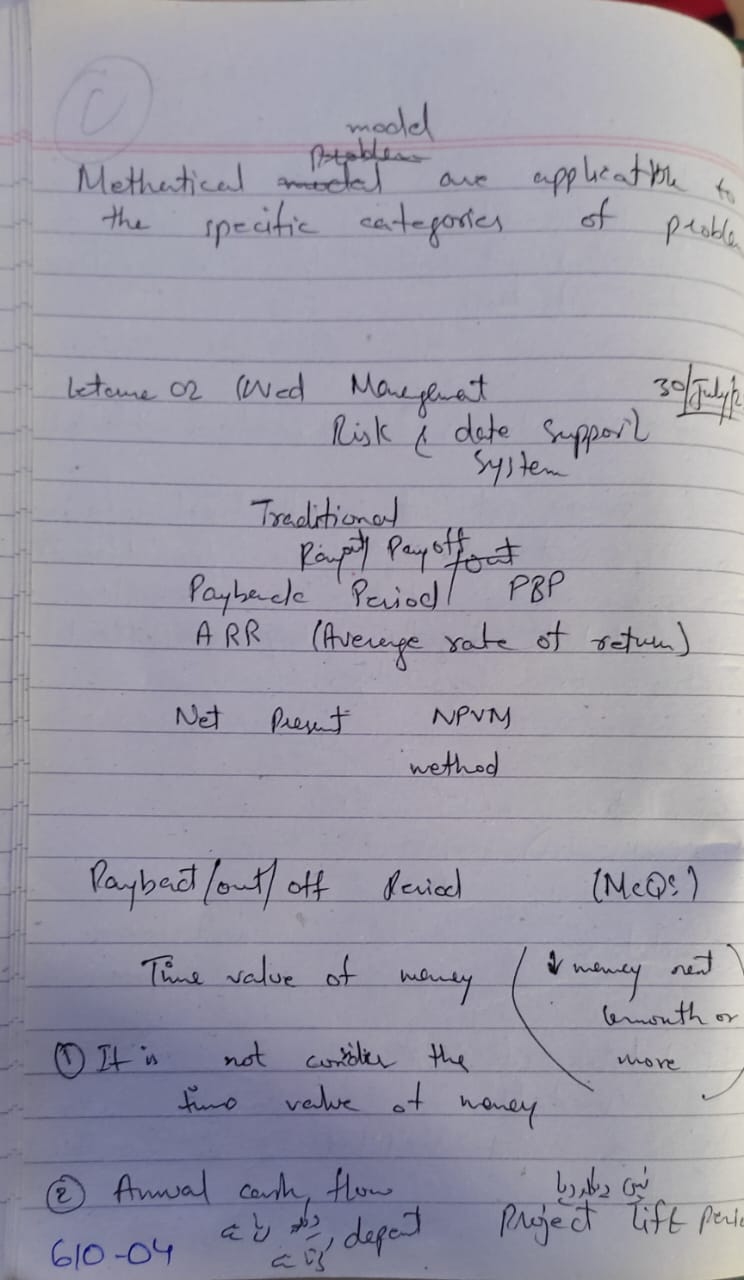 model
Methertical are applicatble to
the specific categories of proble
Lecture 02 (Wed Management 30/July/2
Risk & date Support
System
Traditional
Payoff
Payback Period / PBP
ARR (Average rate of return)
Net Present NPVM
method
Payback/out/off Period (McQs)
Time value of money
↓ money next
6 month or
more
① It is not consider the
time value of money
② Annual cash flow
depent Project lift perio
610-04